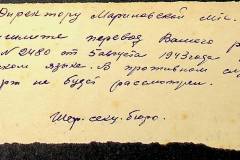 Директору Мариновской М.С.
шлите перевод Вашего
№ 2480 от 5 августа 1943 года
ском языке. В противном сл
не будет рассмотрен.
Шеф. секр. бюро.